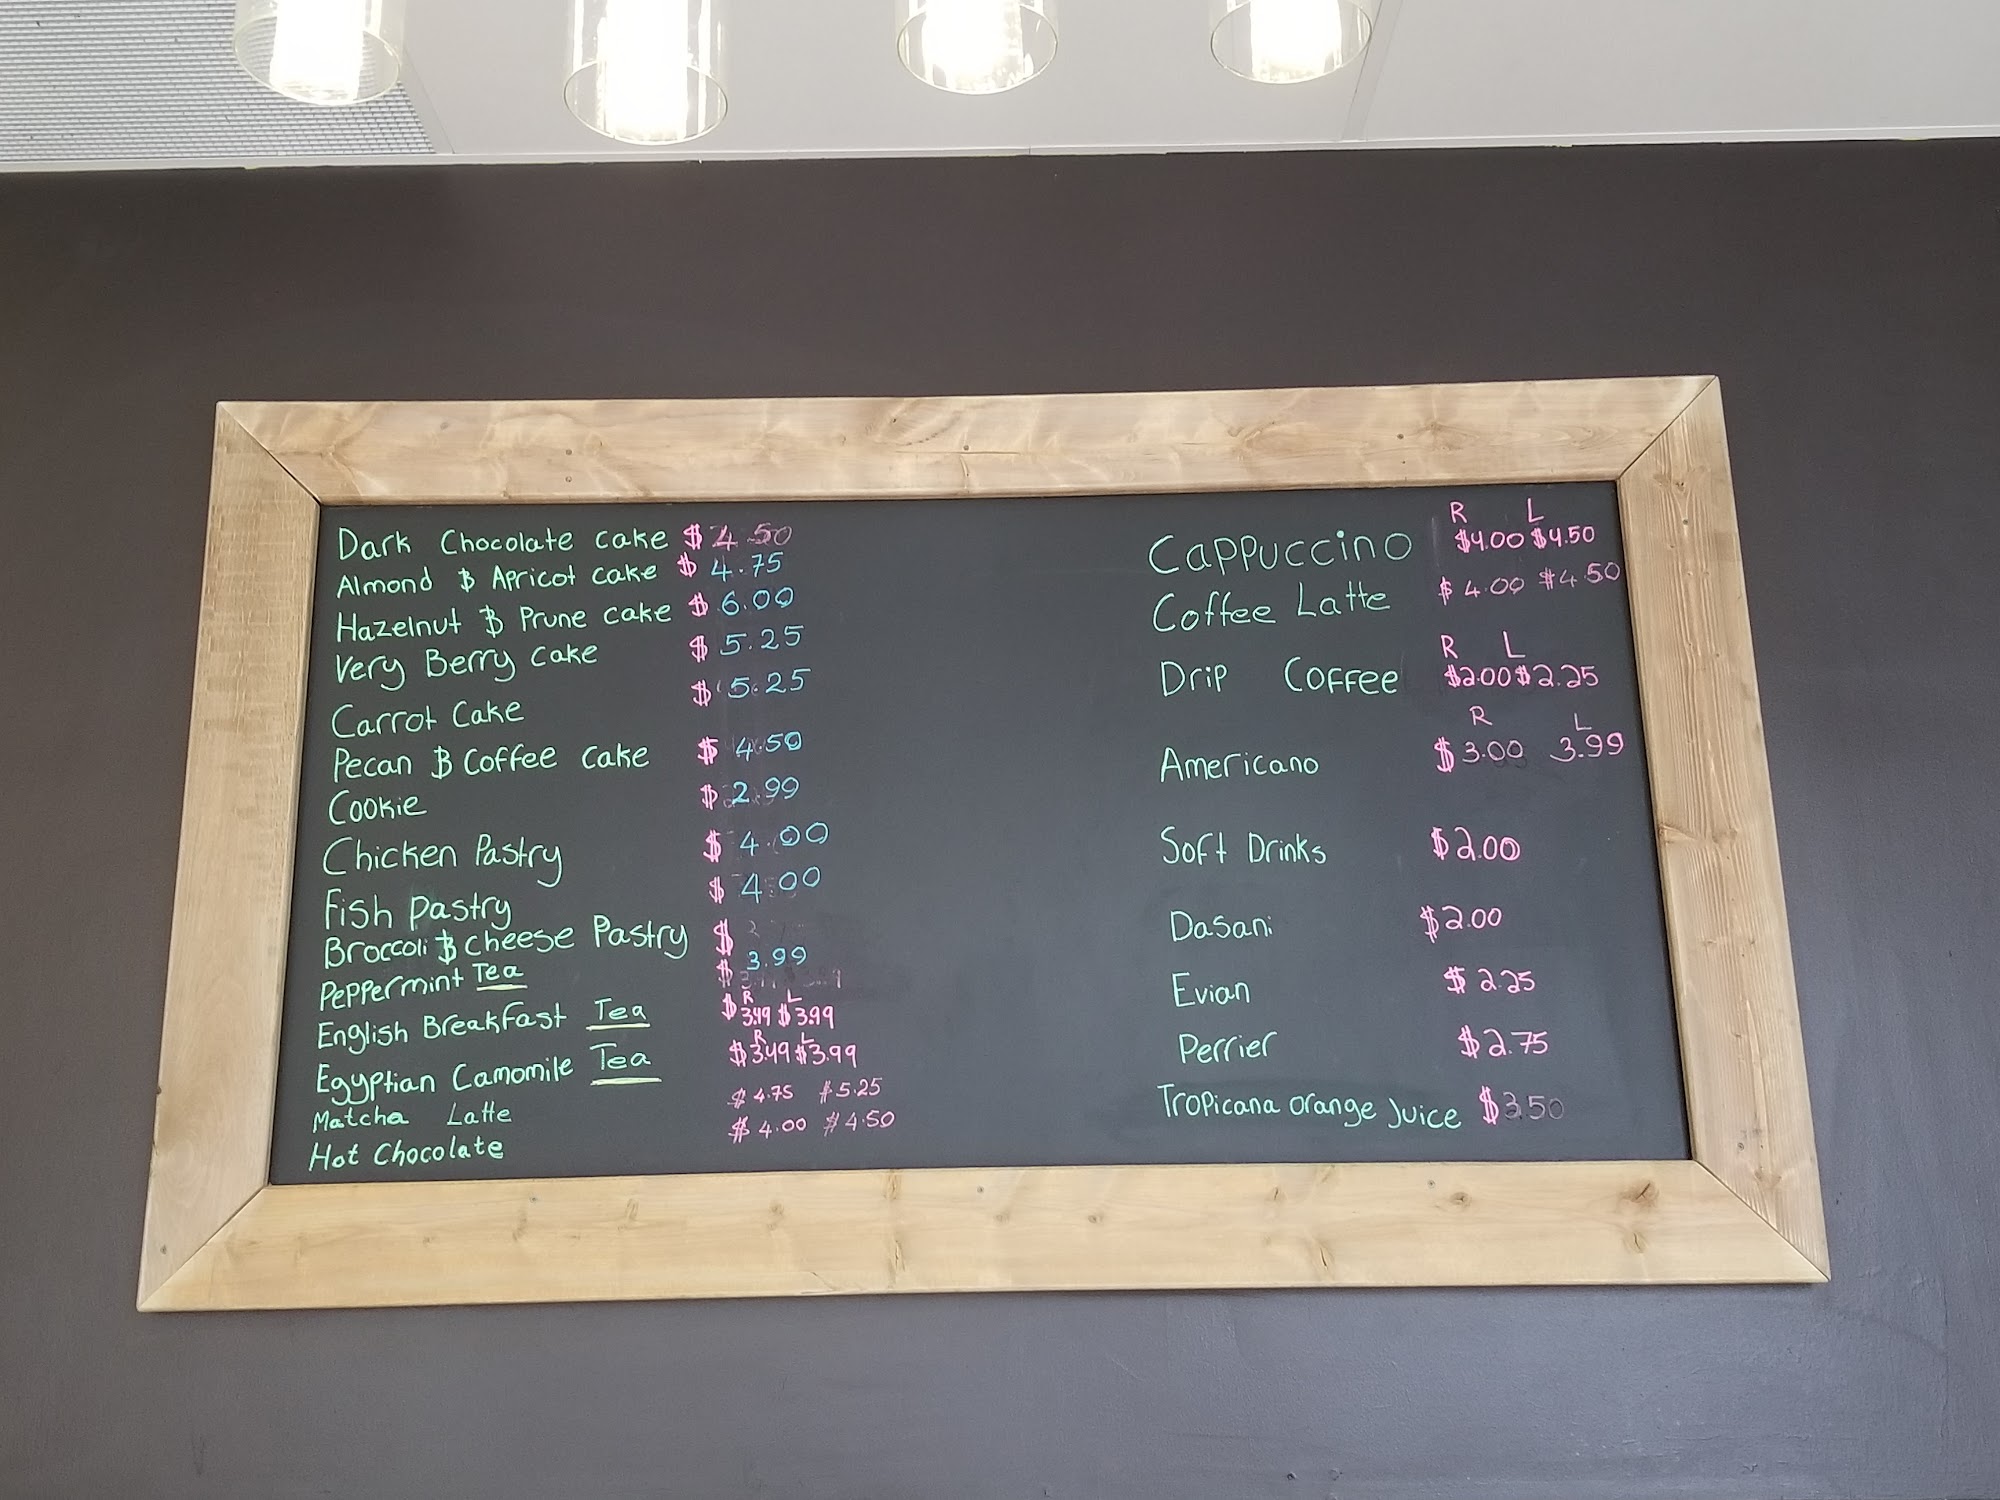 Dark Chocolate cake $ 4.50
Almond & Apricot cake $ 4.75
Hazelnut & Prune cake $ 6.00
Very Berry cake $ 5.25
Carrot Cake $ 5.25
Pecan & Coffee cake $ 4.50
Cookie $ 2.99
Chicken Pastry $ 4.00
Fish Pastry $ 4.00
Broccoli & cheese Pastry $
3.99
Peppermint Tea $
R L
English Breakfast Tea $ 3.49 $ 3.99
R L
Egyptian Camomile Tea $ 3.49 $ 3.99
Matcha Latte $ 4.75 $ 5.25
Hot Chocolate $ 4.00 $ 4.50
R L
Cappuccino $4.00 $4.50
Coffee Latte $ 4.00 $4.50
R L
Drip Coffee $2.00 $2.25
R L
Americano $ 3.00 3.99
Soft Drinks $2.00
Dasani $2.00
Evian $ 2.25
Perrier $2.75
Tropicana orange Juice $3.50